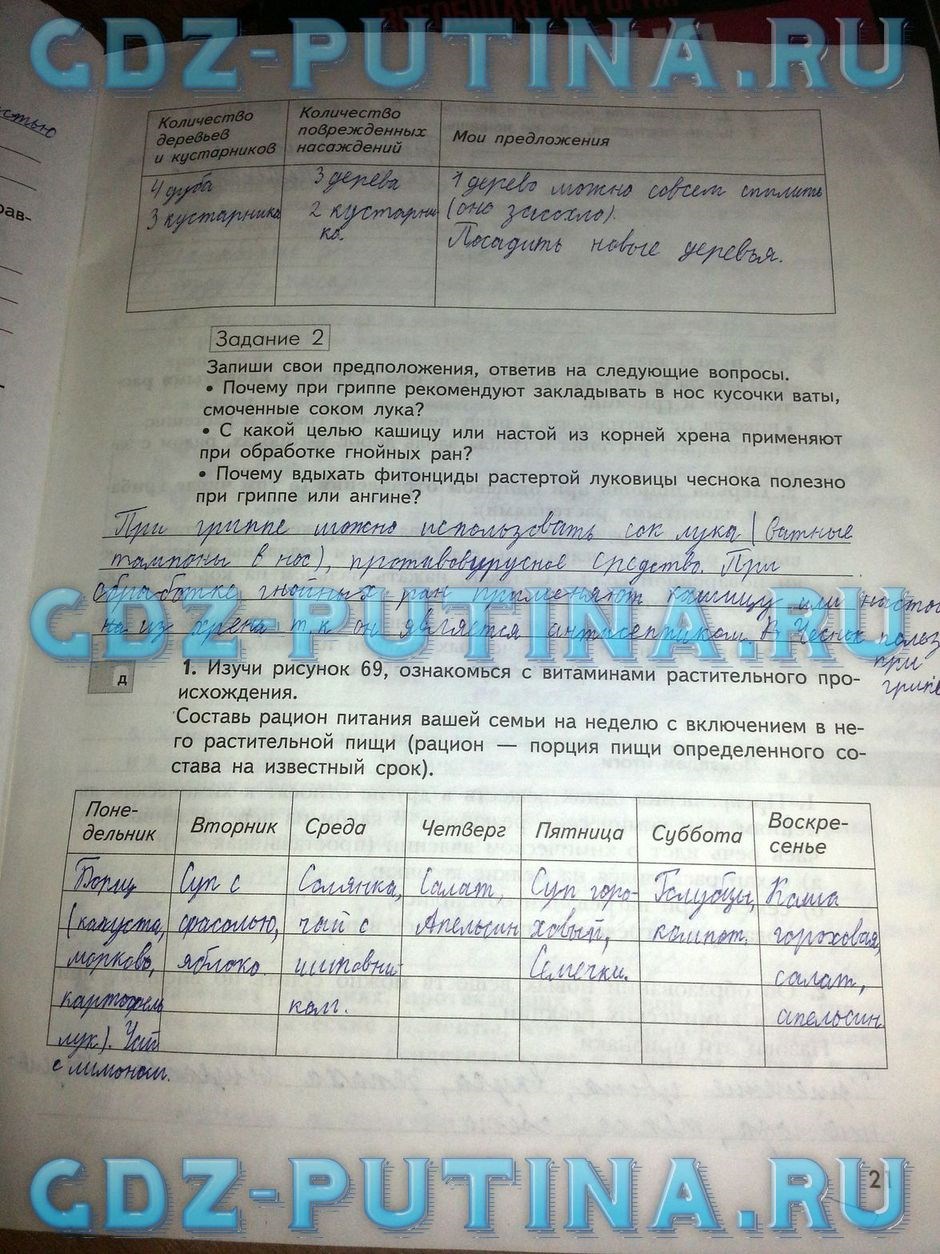 GDZ-PUTINA.RU
Количество деревьев и кустарников
Количество поврежденных насаждений
Мои предложения
4 дуба
3 кустарника
3 дерева
2 кустарни
ка.
1 дерево можно совсем спилить
(оно засохло).
Посадить новые деревья.
Задание 2
Запиши свои предположения, ответив на следующие вопросы.
• Почему при гриппе рекомендуют закладывать в нос кусочки ваты,
смоченные соком лука?
• С какой целью кашицу или настой из корней хрена применяют
при обработке гнойных ран?
• Почему вдыхать фитонциды растертой луковицы чеснока полезно
при гриппе или ангине?
При гриппе можно использовать сок лука (ватные
тампоны в нос), противовирусное средство. При
обработке гнойных ран применяют кашицу или насто
из хрена т.к он является антисептиком. Чеснок полез
при
грипе
GDZ-PUTINA.RU
д
1. Изучи рисунок 69, ознакомься с витаминами растительного про-
исхождения.
Составь рацион питания вашей семьи на неделю с включением в не-
го растительной пищи (рацион — порция пищи определенного со-
става на известный срок).
Поне-
дельник
Вторник
Среда
Четверг
Пятница
Суббота
Воскре-
сенье
Борщ
(капуста,
морковь,
картофель
лук). Чай
с лимоном.
Суп с
фасолью,
яблоко
Солянка,
чай с
шиповни-
ком.
Салат,
Апельсин
Суп горо-
ховый,
Семечки.
Голубцы,
компот.
Каша
гороховая,
салат,
апельсин
21
GDZ-PUTINA.RU